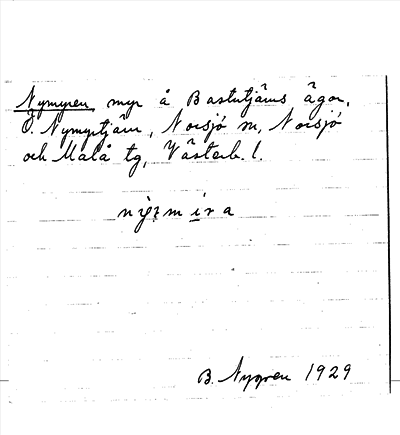 Nymyren, myr å Bastutjärns ägor,
Ö. Nymyrtjärn, Norsjö sn, Norsjö
och Malå tg, Västerb. l.
B. Nygren 1929